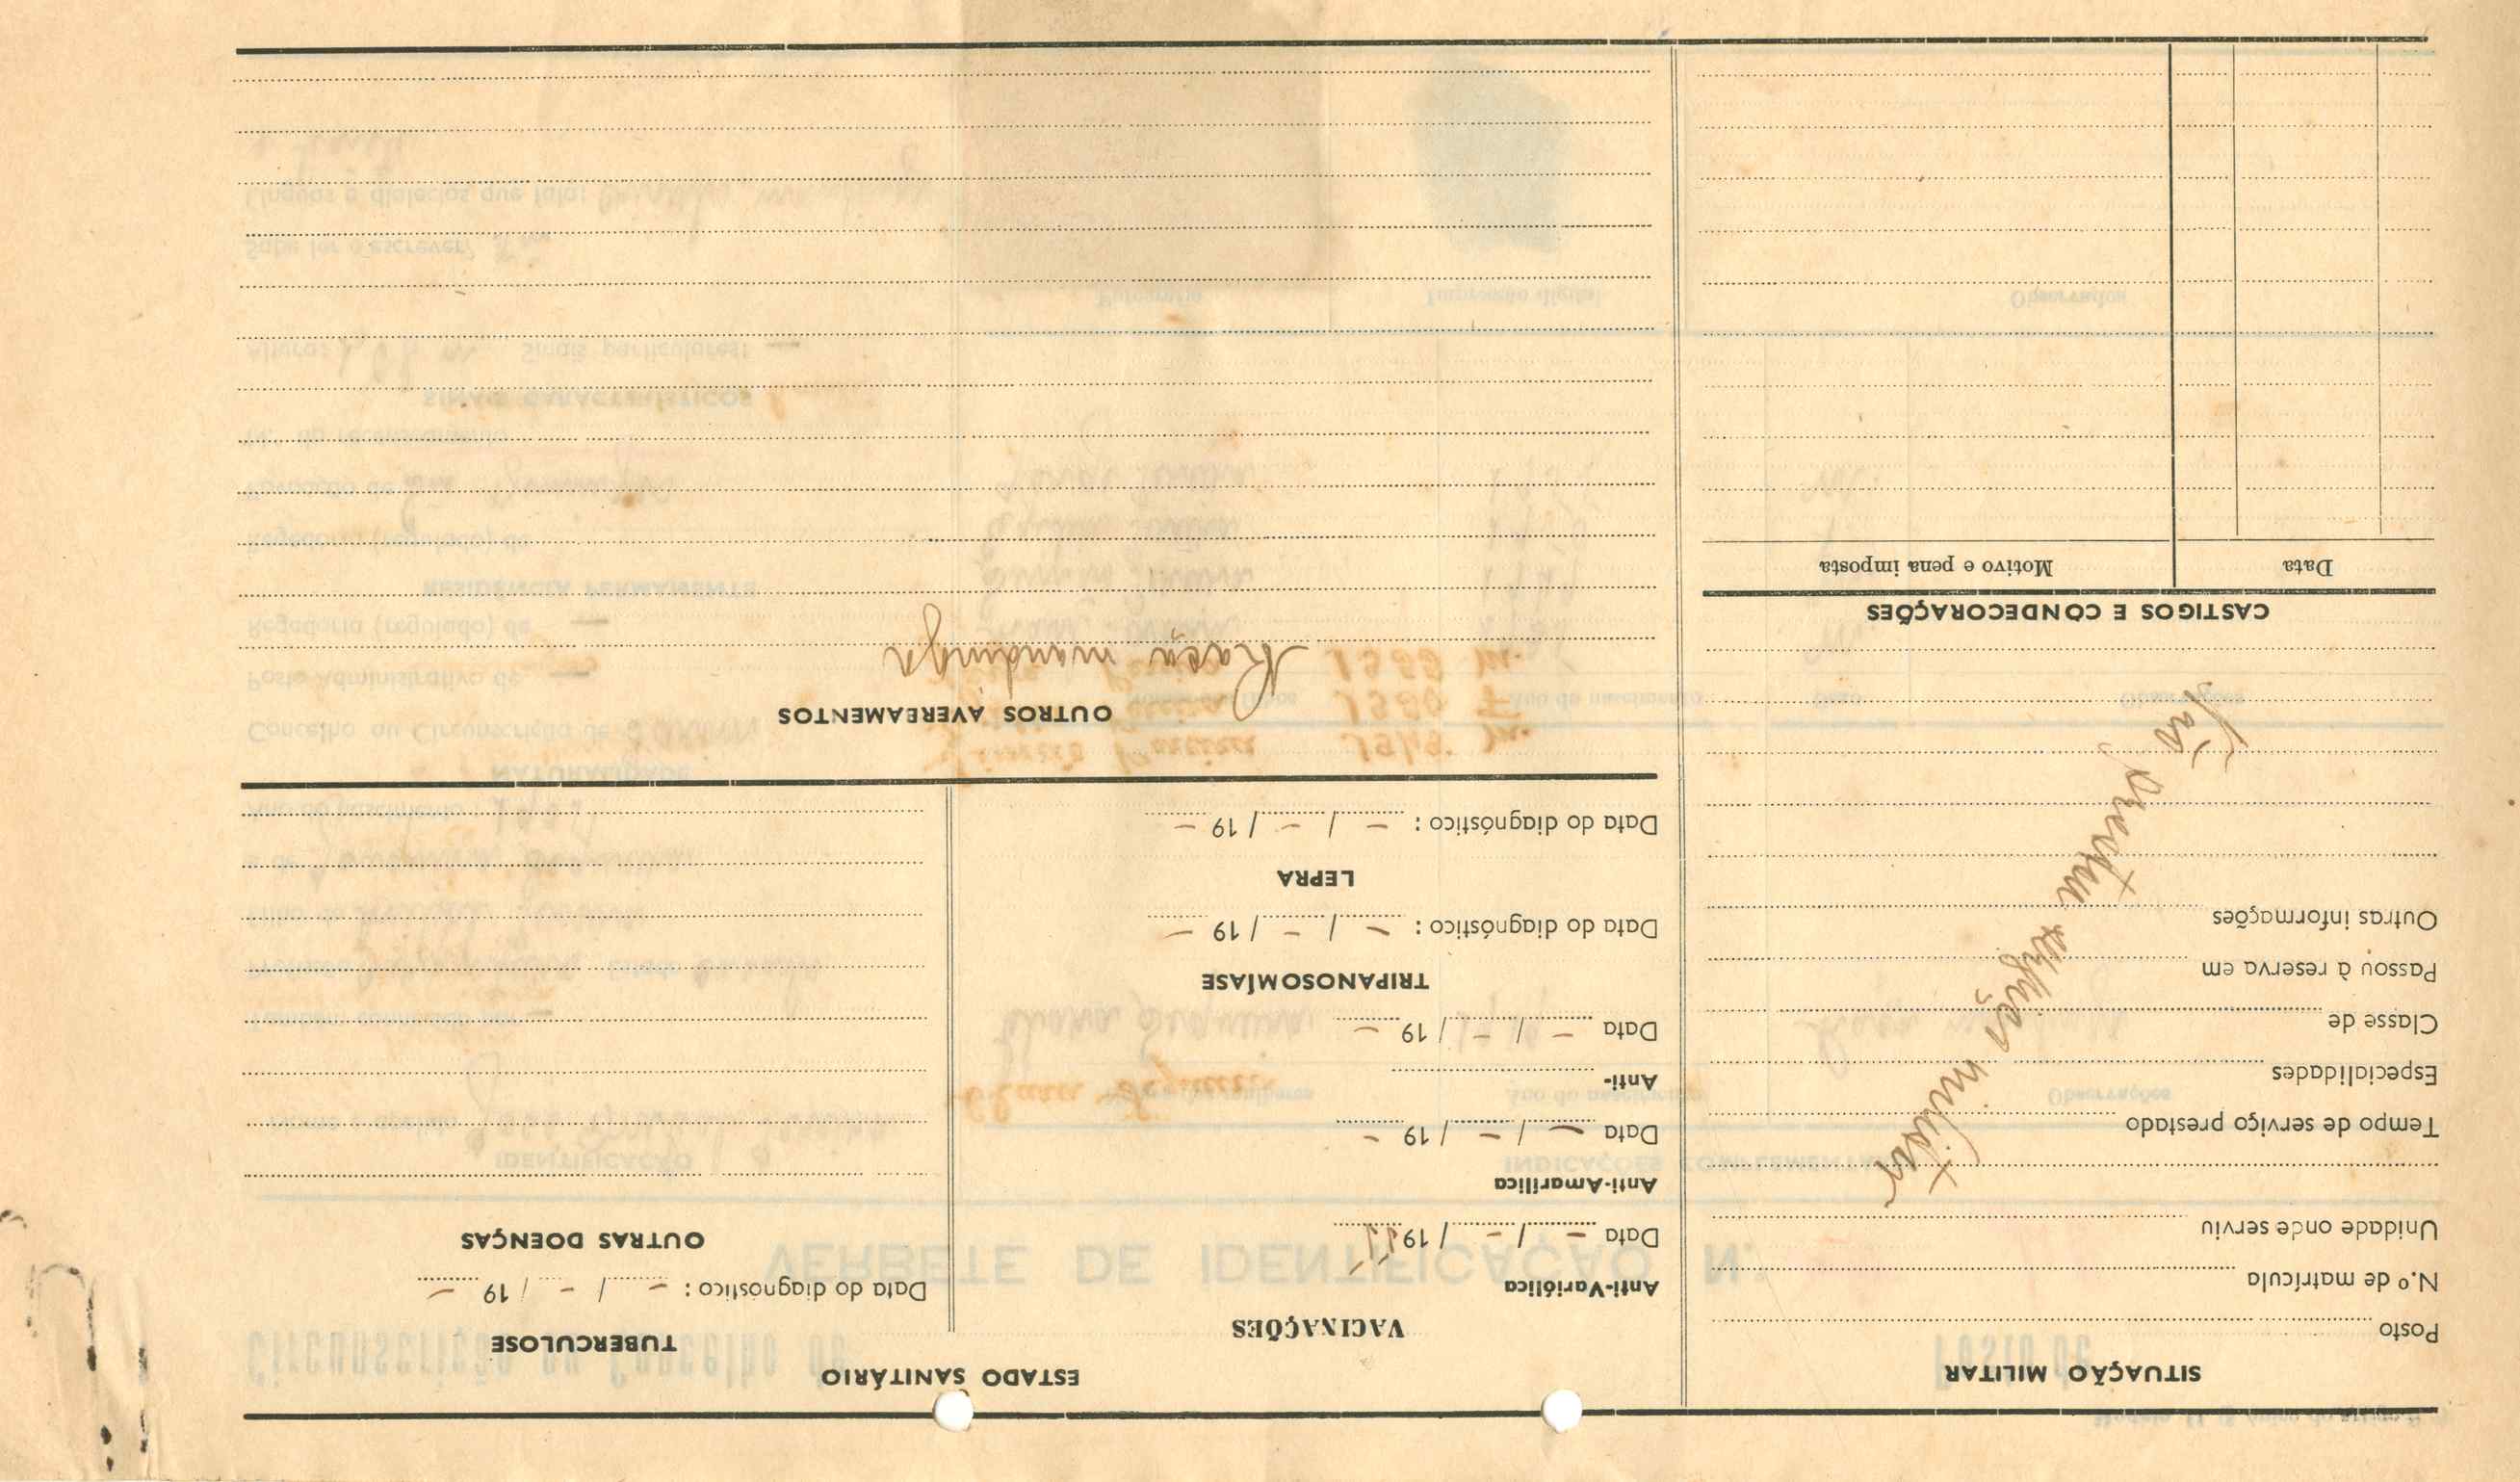 SITUAÇÃO MILITAR
Posto
N.º de matrícula
Unidade onde serviu
Tempo de serviço prestado
Especialidades
Classe de
Passou à reserva em
Outras informações
Não prestou serviço militar
CASTIGOS E CONDECORAÇÕES
Data
Motivo e pena imposta
ESTADO SANITÁRIO
VACINAÇÕES
Anti-Variólica
Data - / - / 19
Anti-Amarílica
Data - / - / 19 -
Anti-
Data - / - / 19 -
TRIPANOSOMÍASE
Data do diagnóstico : - / - / 19 -
LEPRA
Data do diagnóstico : - / - / 19 -
TUBERCULOSE
Data do diagnostico : - / - / 19 -
OUTRAS DOENÇAS
OUTROS AVEREAMENTOS
Raça mandinga